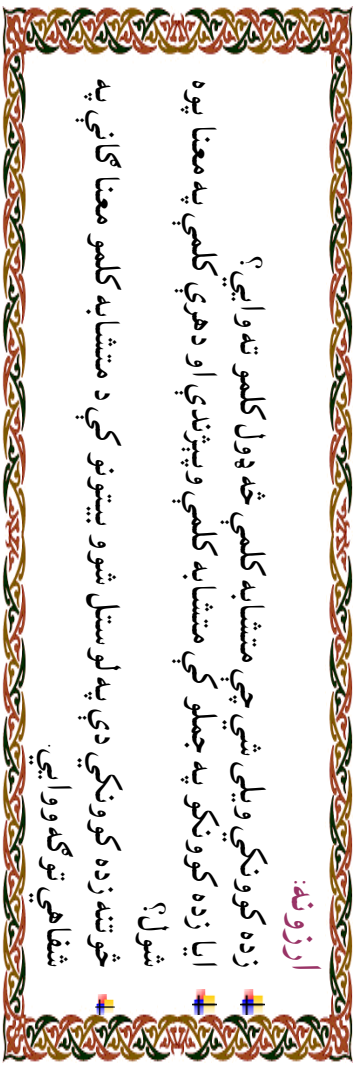 ارزونه:
زده کوونکي ويلی شي چي متشابه کلمې څه ډول کلمو ته وايي؟
ايا زده کوونکو په جملو کې متشابه کلمې وپېژندې او دهرې کلمې په معنا پوه
شول؟
څو تنه زده کوونکي دې په لوستل شوو بيتونو کې د متشابه کلمو معنا گانې په
شفاهي توگه ووايي.